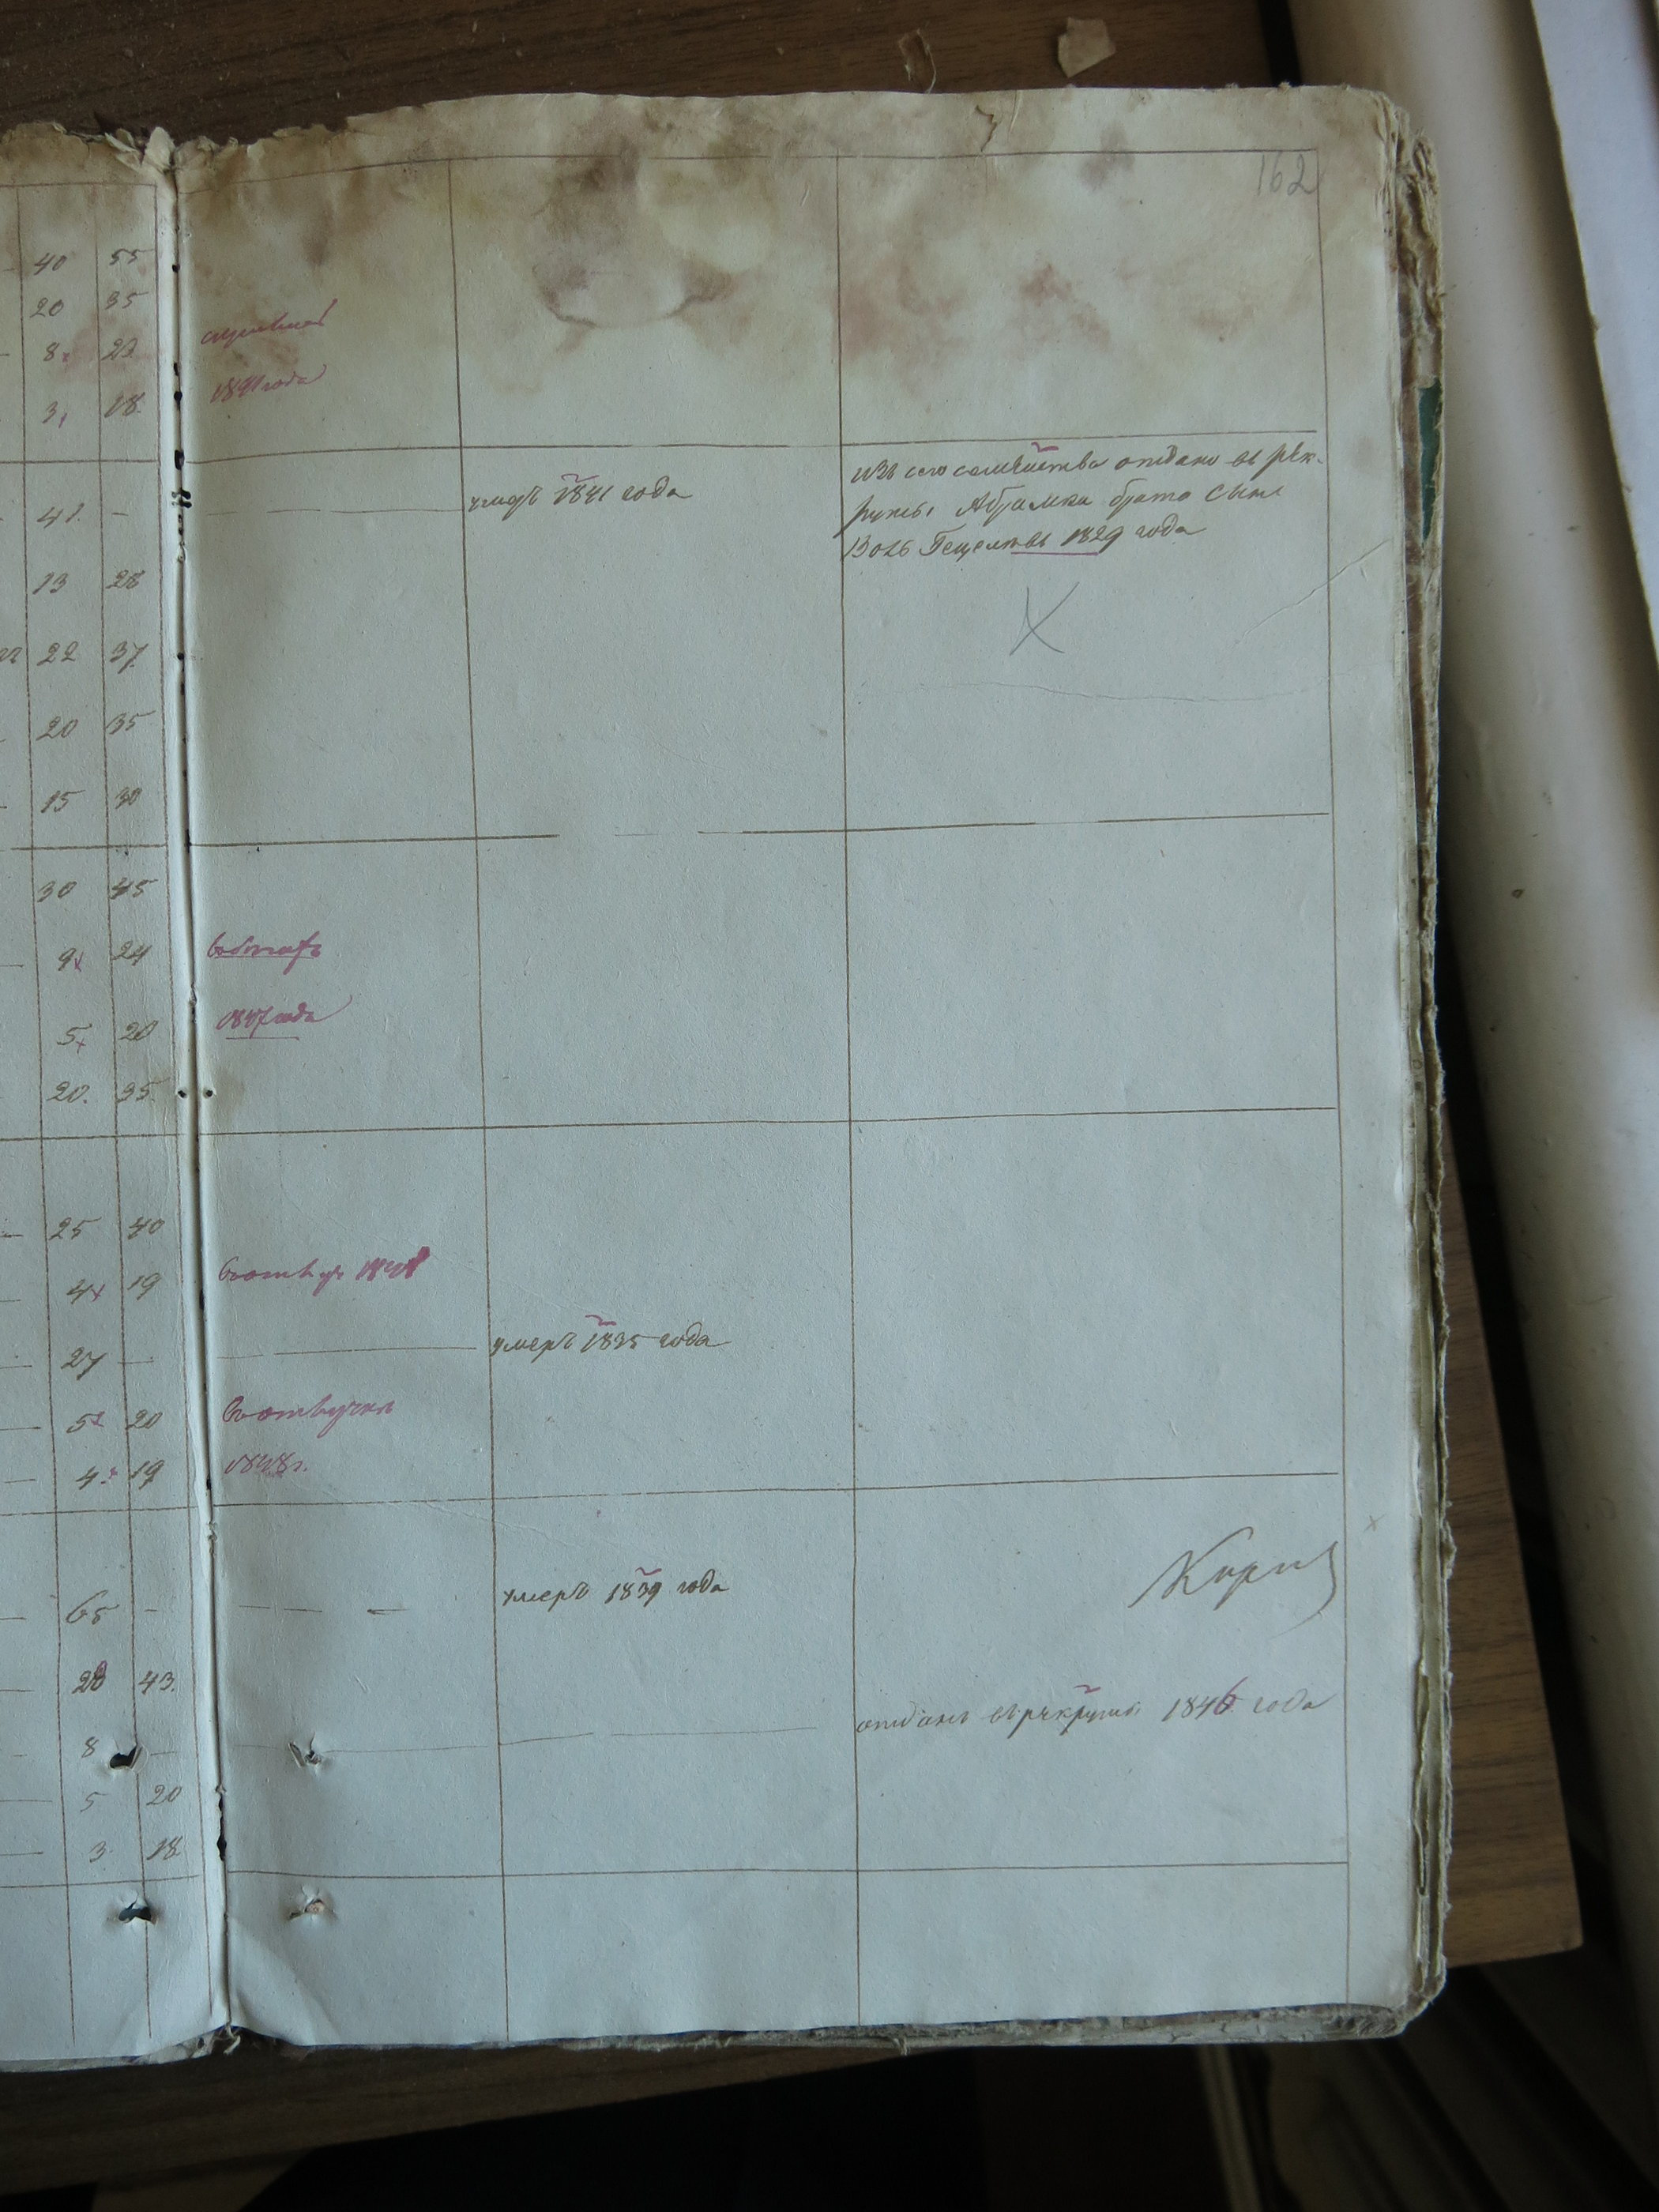 162
40 55
20 35
8 23
3 18.
1841 года
41. —
умеръ 1841 года
изъ сего семейства отданъ въ рек-
руты Абрамка брата сынъ
въ 1829 года
13 28
22 37
20 35
15 30
30 45
9 24
5 20
1847 года
20. 35.
25 40
4 19
1848
27 —
умеръ 1835 года
5 20
4 19
1848 г.
65 —
умеръ 1839 года
28 43.
8 —
отданъ въ рекруты 1846 года
5 20
3 18